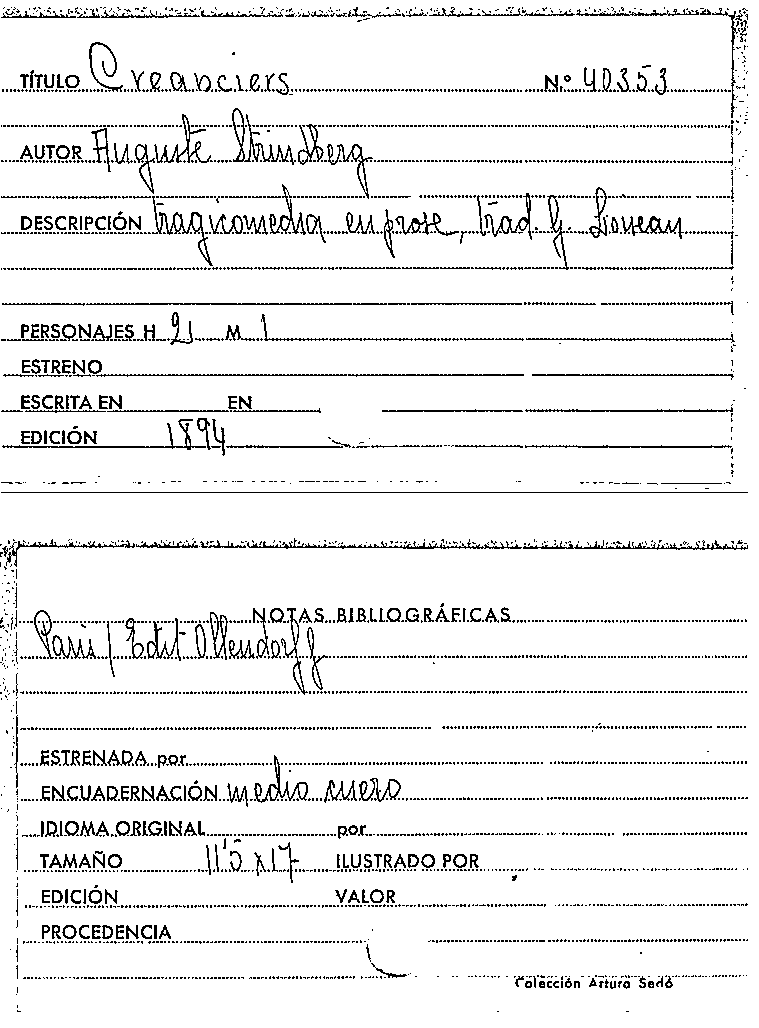 TÍTULO Creanciers N.º 40353
AUTOR Auguste Strindberg
DESCRIPCIÓN tragicomedia en prose, trad. G. Loiseau
PERSONAJES H 2 M 1
ESTRENO
ESCRITA EN EN
EDICIÓN 1894
NOTAS BIBLIOGRÁFICAS
Paris / Edit Ollendorff
ESTRENADA por
ENCUADERNACIÓN medio cuero
IDIOMA ORIGINAL por
TAMAÑO 11'5 x 17 ILUSTRADO POR
EDICIÓN VALOR
PROCEDENCIA
Colección Arturo Sedó